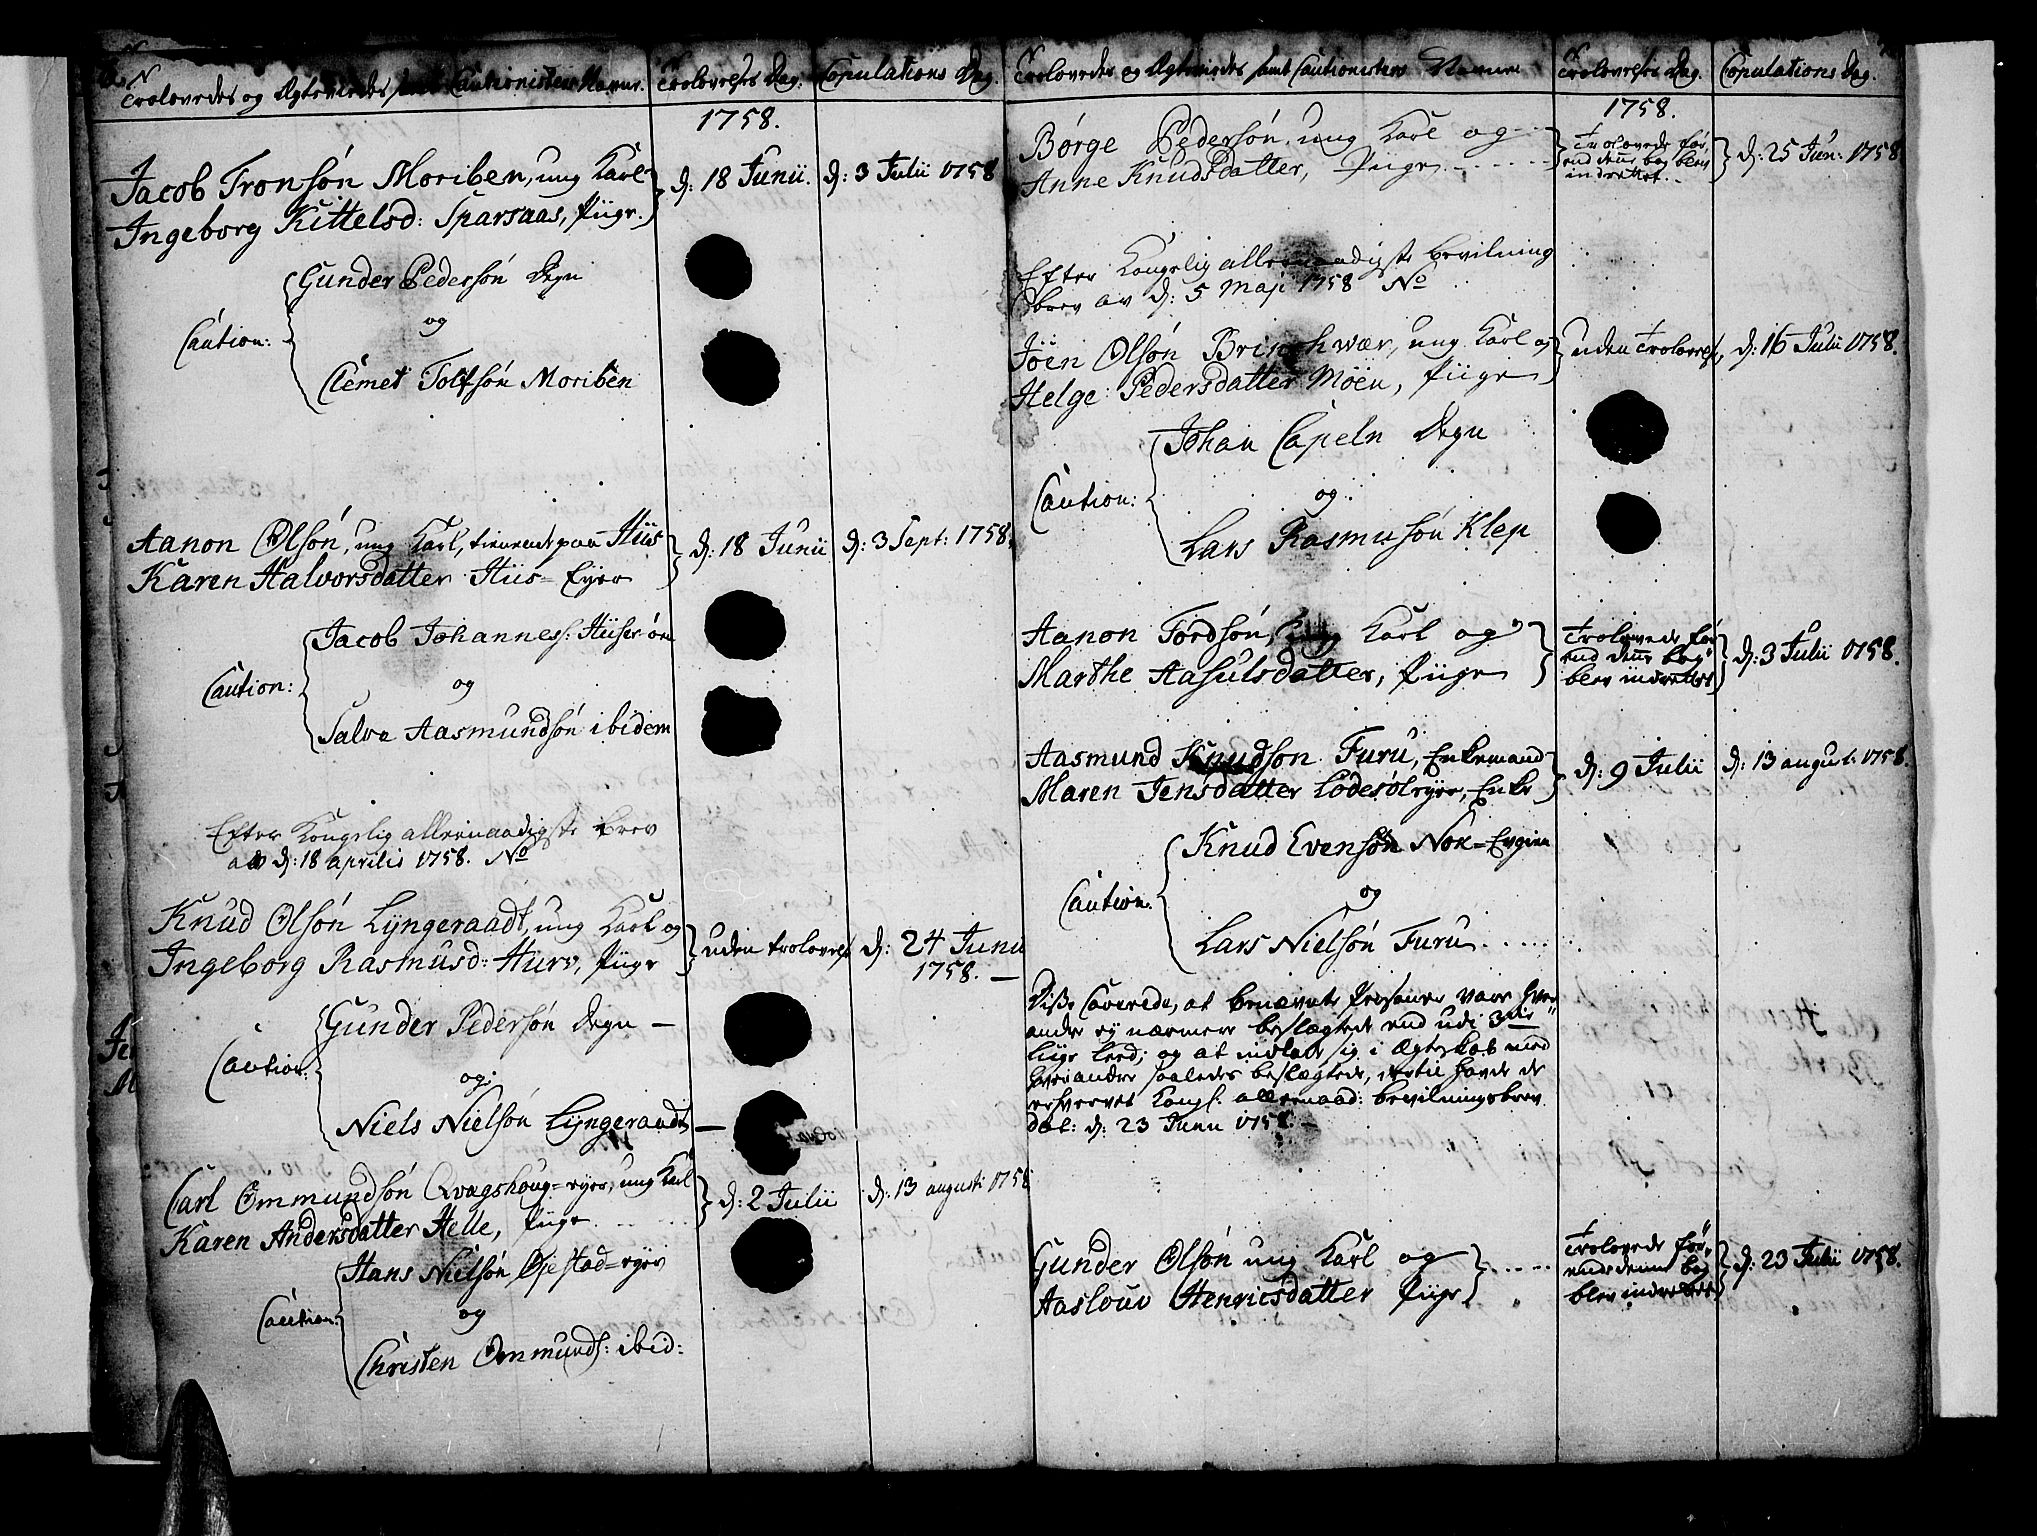 Trolovedes og Ægteviedes samt Cautionisters Navne. Trolovelses Dag. Copulations Dag.
1758.
Jacob Tronsøn Moriben, ung Karl
Ingeborg Kittelsd: Sparsaas, Piige. d: 18 Junii. d: 3 Julii 1758
Gunder Pedersøn Degn
Caution: og
Clemet Tolfsøn Moriben
Aanon Olsøn, ung Karl, tienende paa Hiis
Karen Halvorsdatter Hiis=Eyer d: 18 Junii d: 3 Sept: 1758.
Jacob Johanness: Hiiserøn
Caution: og
Salve Aasmundsøn ibidem
Efter Kongelig allernaadigste brev
av d: 18 Aprilis 1758. No
Knud Olsøn Lyngeraadt, ung Karl og
Ingeborg Rasmusd: Hurv, Piige uden trolovels d: 24 Junii
1758.
Gunder Pedersøn Degn
Caution: og
Niels Nielsøn Lyngeraadt
Carl Ommundsøn Qvagshoug=eyer, ung Karl
Karen Andersdatter Helle, Piige d: 2 Julii d: 13 augusti 1758
Hans Nielsøn Øjestad=eyer
Caution: og
Christen Ommunds: ibid:
Trolovedes og Ægteviedes samt Cautionisters Navne Trolovelses Dag. Copulations Dag.
1758.
Børge Pedersøn, ung Karl og
Anne Knudsdatter, Piige Trolovede før
end denne bog blev
indrettet. d: 25 Jun: 1758
Efter Kongelig allernaadigste bevilning
brev av d: 5 Maji 1758 No
Jöen Olsøn Bringhwær, ung Karl og
Helge Pedersdatter Möen, Piige uden Trolovels d: 16 Julii 1758.
Johan Capeln Degn
Caution: og
Lars Rasmusøn Klep
Aanon Tordsøn, ung Karl og
Marthe Aasulsdatter, Piige Trolovede før
end denne bog
blev indrettet d: 3 Julii 1758.
Aasmund Knudsøn Furu, Enkemand
Maren Jensdatter Lodesøleyer, Enke d: 9 Julii d: 13 august: 1758.
Knud Evensøn Nox=Evgien
Caution: og
Lars Nielsøn Furu
Disse Caverede, at benævnte Personer vare hver
andre ey nærmere beslægtede end udi 3die
liige leed; og at indlade sig i Ægteskab med
hverandre saaledes beslægtede, dertil havde de
erhvervet Kongl. allernaad: bevilningsbrev
dat: d: 23 Junii 1758.
Gunder Olsøn ung Karl og
Aaslouv Henricsdatter Piige Trolovede før
end denne bog
blev indrettet d: 23 Julii 1758.